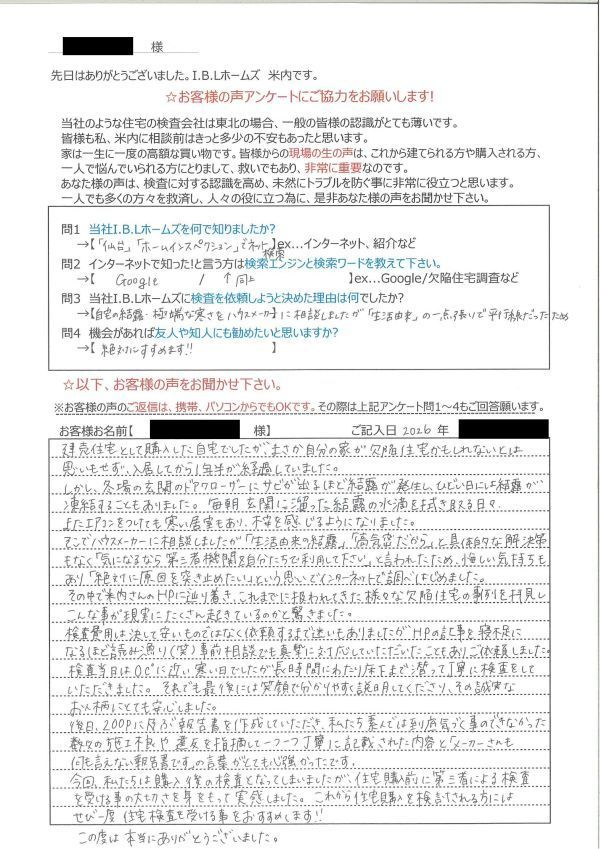 様
先日はありがとうございました。I.B.Lホームズ 米内です。
☆お客様の声アンケートにご協力をお願いします!
当社のような住宅の検査会社は東北の場合、一般の皆様の認識がとても薄いです。
皆様も私、米内に相談前はきっと多少の不安もあったと思います。
家は一生に一度の高額な買い物です。皆様からの現場の生の声は、これから建てられる方や購入される方、
一人で悩んでいられる方にとりまして、救いでもあり、非常に重要なのです。
あなた様の声は、検査に対する認識を高め、未然にトラブルを防ぐ事に非常に役立つと思います。
一人でも多くの方々を救済し、人々の役に立つ為に、是非あなた様の声をお聞かせ下さい。
問1 当社I.B.Lホームズを何で知りましたか?
→【「仙台」「ホームインスペクション」でネット検索】ex…インターネット、紹介など
問2 インターネットで知った!と言う方は検索エンジンと検索ワードを教えて下さい。
→【 Google / ↑同上 】ex…Google/欠陥住宅調査など
問3 当社I.B.Lホームズに検査を依頼しようと決めた理由は何でしたか?
→【自宅の結露・極端な寒さをハウスメーカー】に相談しましたが「生活由来」の一点張りで平行線だったため
問4 機会があれば友人や知人にも勧めたいと思いますか?
→【 絶対にすすめます!! 】
☆以下、お客様の声をお聞かせ下さい。
※お客様の声のご返信は、携帯、パソコンからでもOKです。その際は上記アンケート問1~4もご回答願います。
お客様お名前【 様】 ご記入日 2026 年
建売住宅として購入した自宅でしたが、まさか自分の家が欠陥住宅かもしれないとは
思いもせず、入居してから1年半が経過していました。
しかし、冬場の玄関のドアクローザーにサビが出るほど結露が発生し、ひどい日には結露が
凍結することもありました。毎朝玄関に溜った結露の水滴を拭き取る日々。
またエアコンをつけても寒い居室もあり、不安を感じるようになりました。
そこでハウスメーカーに相談しましたが「生活由来の結露」「高気密だから」と具体的な解決策
もなく「気になるなら第三者機関を自分たちで利用して下さい」と言われたため、悔しい気持ちも
あり「絶対に原因を突き止めたい」という思いでインターネットで調べはじめました。
その中で米内さんのHPに辿り着き、これまでに扱われてきた様々な欠陥住宅の事例を拝見し
こんな事が現実にたくさん起きているのかと驚きました。
検査費用は決して安いものではなく依頼するまで迷いもありましたがHPの記事を寝不足に
なるほど読み漁り(笑)事前相談でも真摯に対応していただいたこともありご依頼しました。
検査当日は0℃に近い寒い日でしたが長時間にわたり床下まで潜って丁寧に検査をして
いただきました。それでも最後には笑顔で分かりやすく説明してくださり、その誠実な
お人柄にとても安心しました。
後日、200Pに及ぶ報告書を作成していただき、私たち素人では到底気づく事のできなかった
数々の施工不良や違反を指摘して一つ一つ丁寧に記載された内容と「メーカーさんも
何も言えない報告書です。」の言葉がとても心強かったです。
今回、私たちは購入後の検査となってしまいましたが、住宅購入前に第三者による検査
を受ける事の大切さを身をもって実感しました。これから住宅購入を検討される方には
ぜひ一度住宅検査を受ける事をおすすめします!!
この度は本当にありがとうございました。